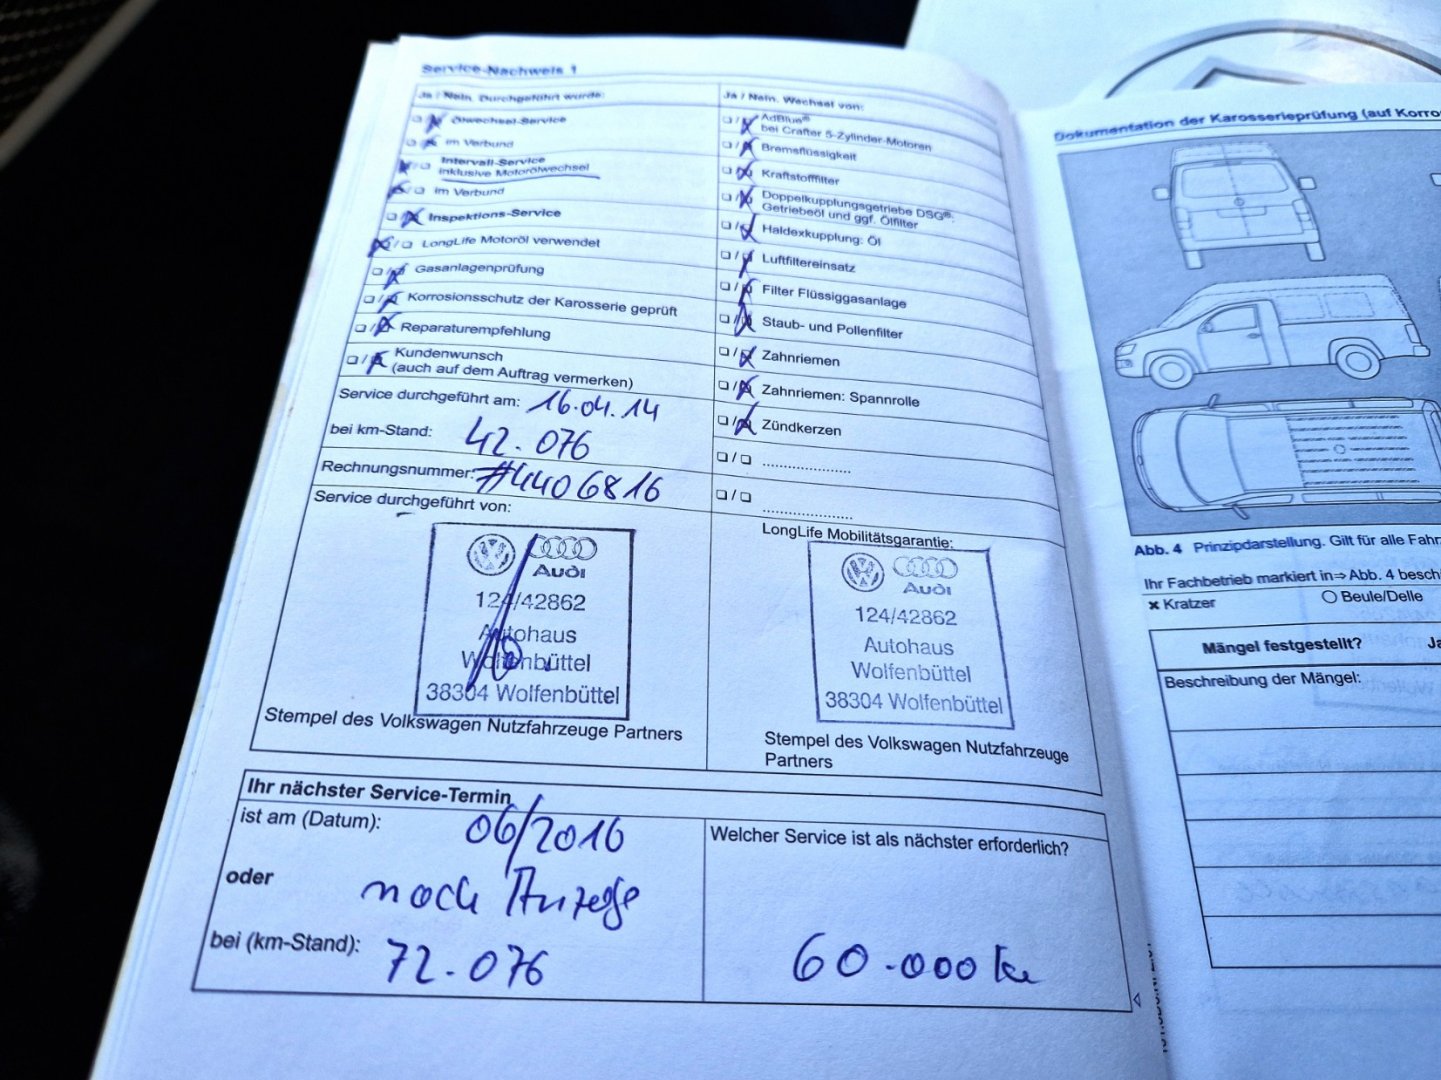 Service-Nachweis 1
Ja / Nein. Durchgeführt wurde:
Ölwechsel-Service
im Verbund
Intervall-Service
inklusive Motorölwechsel
im Verbund
Inspektions-Service
LongLife Motoröl verwendet
Gasanlagenprüfung
Korrosionsschutz der Karosserie geprüft
Reparaturempfehlung
Kundenwunsch
(auch auf dem Auftrag vermerken)
Service durchgeführt am: 16.04.14
bei km-Stand: 42.076
Rechnungsnummer: #4406816
Service durchgeführt von:
Audi
124/42862
Autohaus
Wolfenbüttel
38304 Wolfenbüttel
Stempel des Volkswagen Nutzfahrzeuge Partners
Ja / Nein. Wechsel von:
AdBlue®
bei Crafter 5-Zylinder-Motoren
Bremsflüssigkeit
Kraftstofffilter
Doppelkupplungsgetriebe DSG®:
Getriebeöl und ggf. Ölfilter
Haldexkupplung: Öl
Luftfiltereinsatz
Filter Flüssiggasanlage
Staub- und Pollenfilter
Zahnriemen
Zahnriemen: Spannrolle
Zündkerzen
LongLife Mobilitätsgarantie:
Audi
124/42862
Autohaus
Wolfenbüttel
38304 Wolfenbüttel
Stempel des Volkswagen Nutzfahrzeuge
Partners
Ihr nächster Service-Termin
ist am (Datum): 06/2016
oder nach Anzeige
bei (km-Stand): 72.076
Welcher Service ist als nächster erforderlich?
60.000 km
Dokumentation der Karosserieprüfung (auf Korro
Abb. 4 Prinzipdarstellung. Gilt für alle Fahr
Ihr Fachbetrieb markiert in⇒Abb. 4 besch
x Kratzer
O Beule/Delle
Mängel festgestellt? Ja
Beschreibung der Mängel: